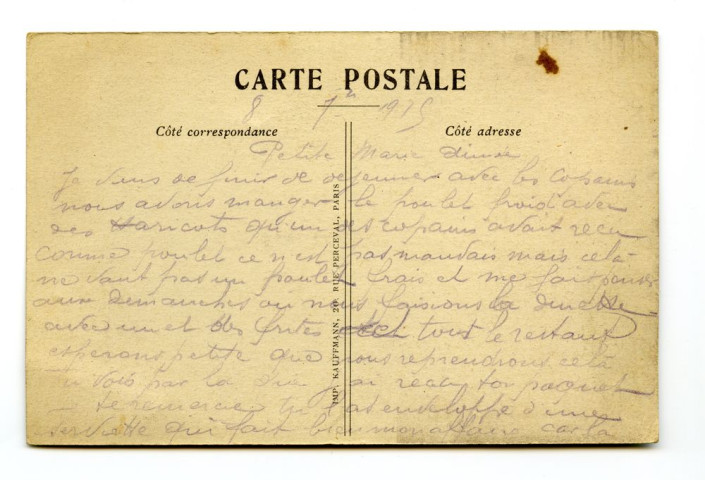 CARTE POSTALE
8 7bre 1915
Côté correspondance
Côté adresse
Petite Marie aimée
Je viens de finir de dejeuner avec les copains
nous avons manger le poulet froid avec
des Haricots qu'un des copains avait recu
comme poulet ce n'est pas mauvais mais cela
ne vaut pas un poulet frais et me fait penser
aux dimanches ou nous faisions la dinette
avec un et des frites et tout le restant
esperons petite que nous reprendrons cela
Tu vois par la que j'ai recu ton paquet
Je remercie tu l'as enveloppé d'une
serviette qui fait bien mon affaire car la
IMP. KAUFFMANN, 20, RUE PERCEVAL, PARIS